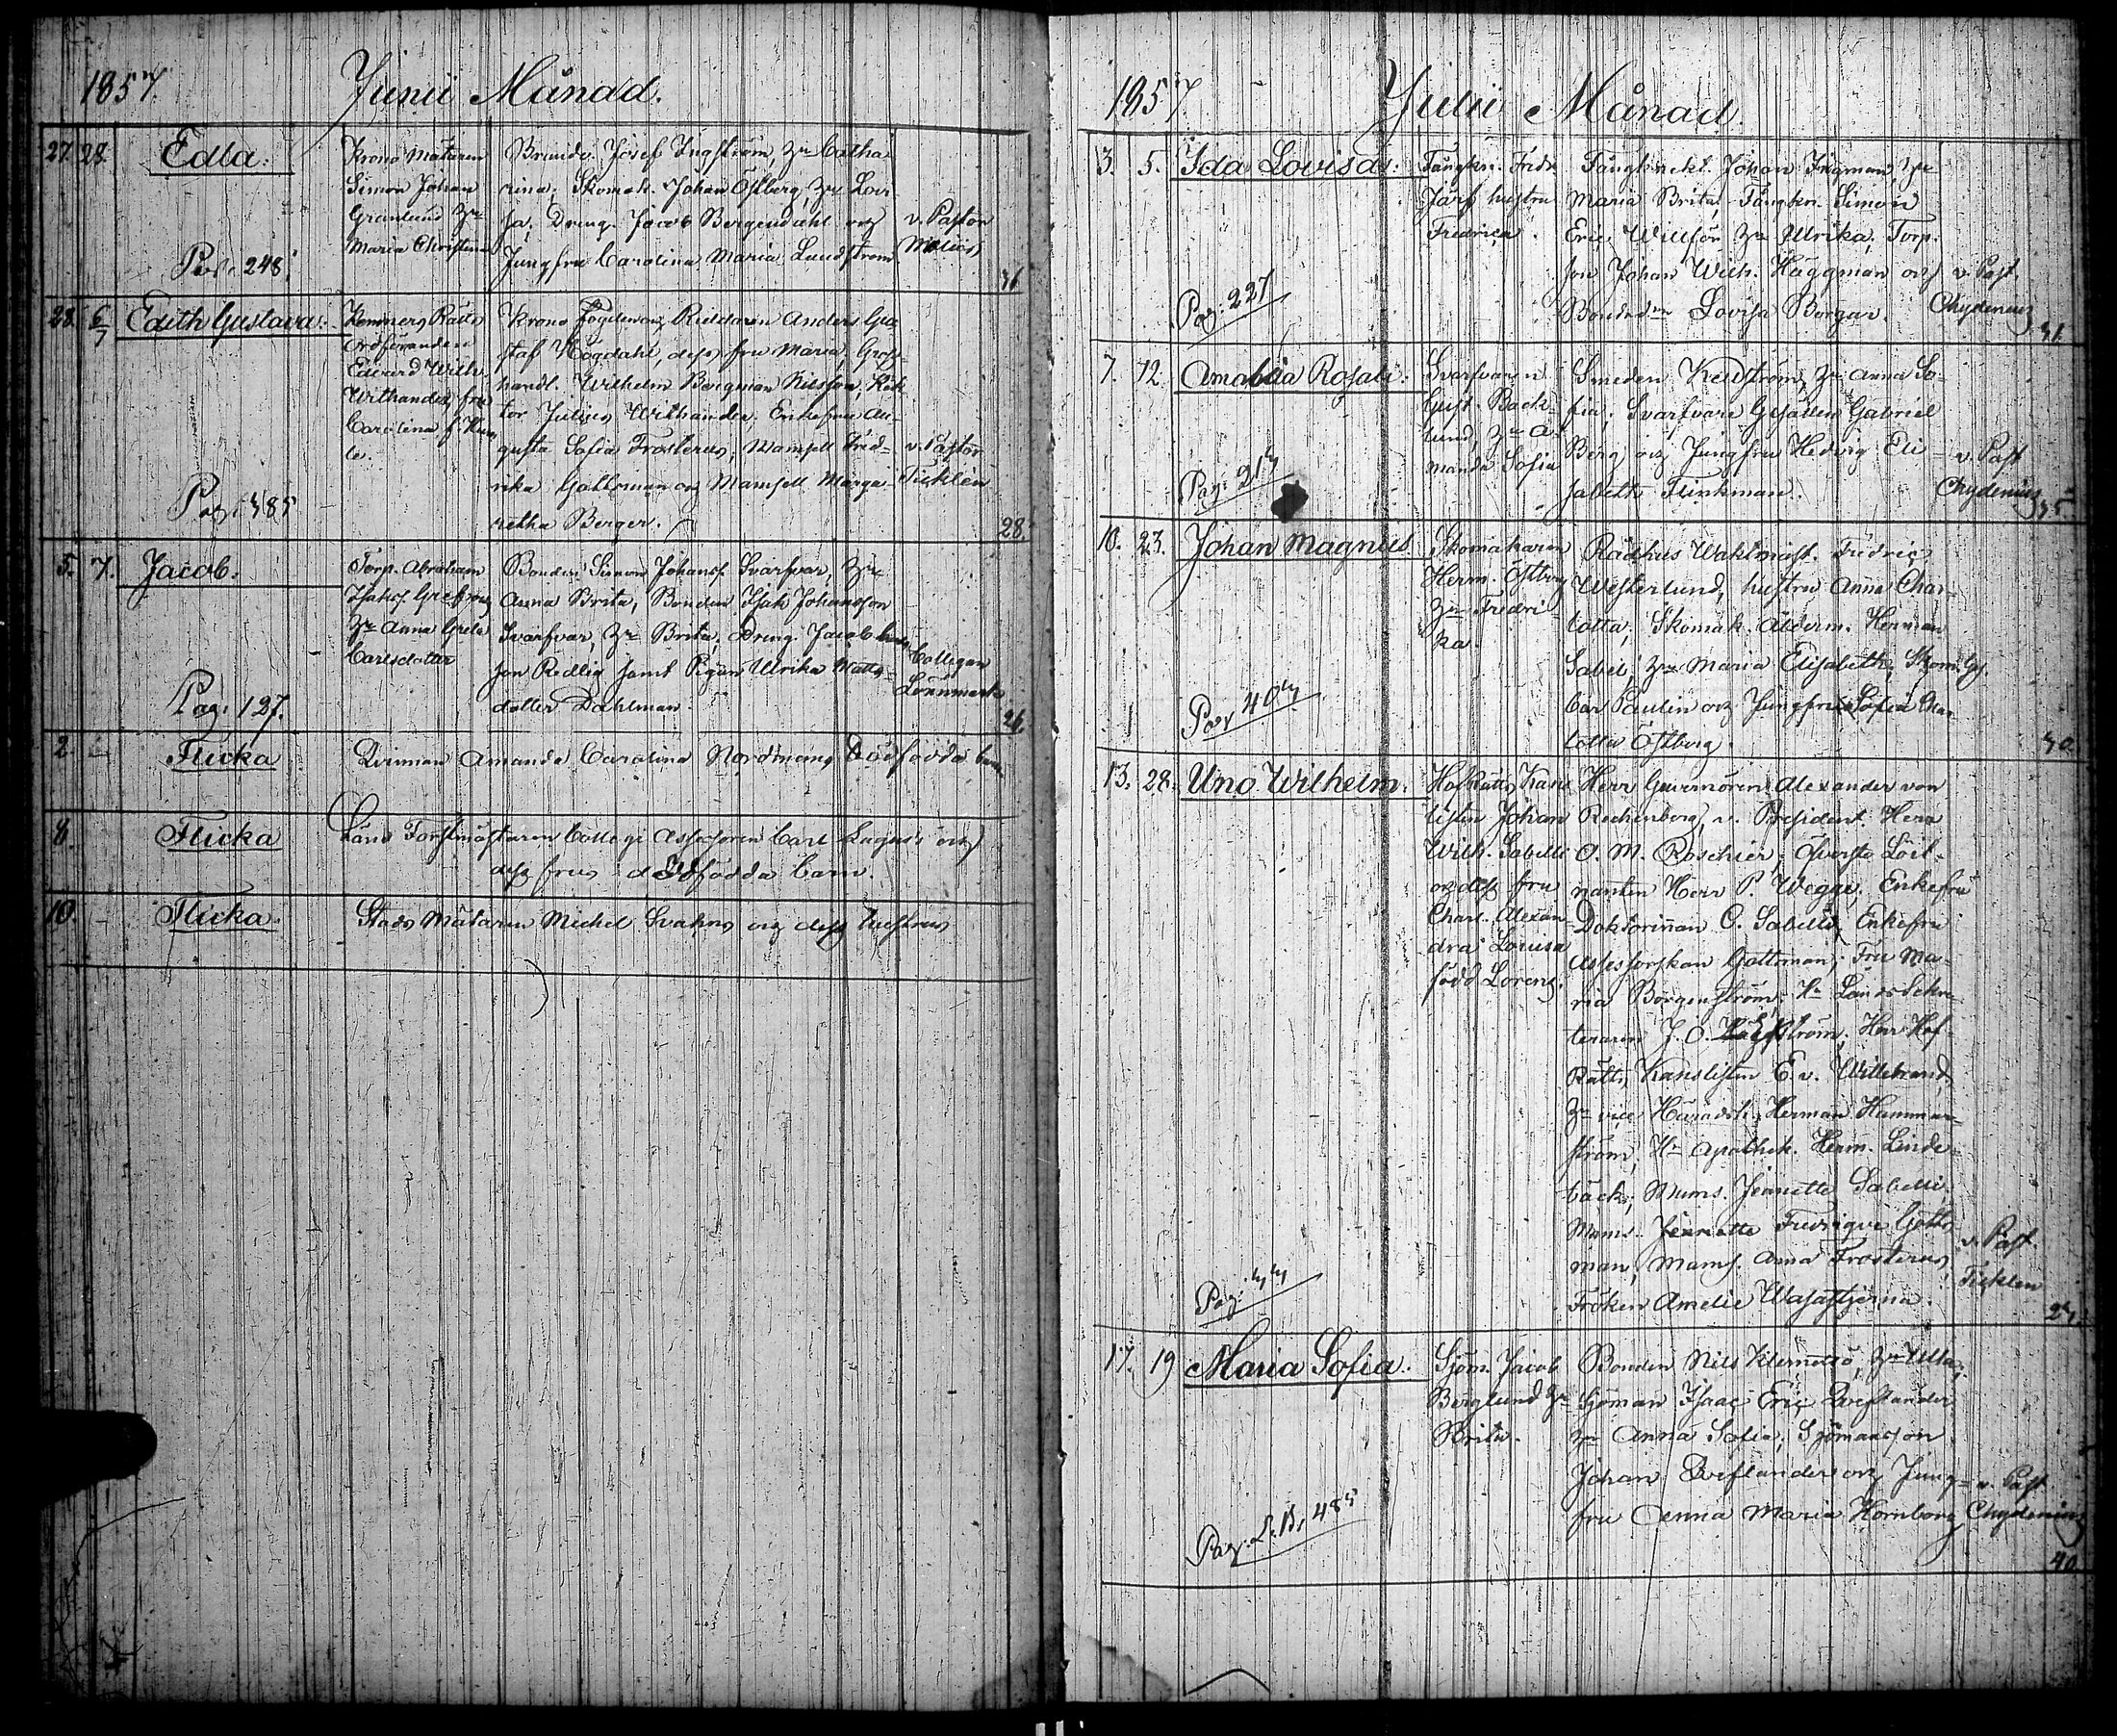 1857. Junii Månad.
27. 28. Edla.
Krono Mätaren
Simon Johan
Granlund Hu
Maria Christina
Brunds. Josef Engström, Hu Catha
rina; Skomak. Johan Östberg, Hu Lovi
sa, Dreng. Jacob Bergendahl och
Jungfru Carolina Maria Lundström
v. Pastor
Pag. 248.
28. 6/7 Edith Gustava.
Kämners Rätts
Ordföranden
Edvard Wilh.
Withander, fru
Carolina f.
Krono Fogden och Riddaren Anders Gu
staf Högdahl, dess fru Maria. Gross
handl. Wilhelm Bergman Nilsson, Rek
tor Julius Withander. Enkefru Au
gusta Sofia Frosterus, Mamsell Fred
rika Gottsman och Mamsell Marga
retha Berger.
v. Pastor
Ticklén
28.
Pag. 385
5. 7. Jacob.
Torp. Abraham
Isaks. Gref och
Hu Anna Greta
Carlsdotter
Bonden Simon Johans. Svarfvar, Hu
Anna Brita, Bonden Isak Johansson
Svarfvar, Hu Brita, Dreng. Jacob
son Redlig samt Pigan Ulrika Matts
dotter Dahlman.
Collegan
Lönnmark
26.
Pag. 127.
2. Flicka
Qvinnan Amanda Carolina Nordmans dödfödda barn
8. Flicka
Läns Forstmästaren College Assessoren Carl Lagus's och
dess frus dödfödda barn.
10. Flicka.
Stads Mätaren Michel Svahns och dess hustrus
1857 Julii Månad.
3. 5. Ida Lovisa.
Fångkn. Fredr.
Jerf hustru
Fredrica.
Fångknekt. Johan Ingman, Hu
Maria Brita, Fångkn. Simon
Eric Willför Hu Ulrika, Torp.
son Johan Wilh. Häggman och
Bondedr Lovisa Borgar.
v. Past.
Chydenius
31.
Pag. 227
7. 12. Amalia Rosali.
Svarfvaren
Gust. Back
lund, Hu A
manda Sofia
Smeden Kedström, Hu Anna So
fia; Svarfvare Gesällen Gabriel
Berg och Jungfru Hedvig Eli
sabeth Flinkman.
v. Past
Chydenius
35.
Pag. 214
10. 23. Johan Magnus
Skomakaren
Herm. Östberg
Hu Fredri
ka.
Rådhus Waktmäst. Fredric
Westerlund, hustru Anna Char
lotta, Skomak. Ålderm. Herman
Sabel, Hu Maria Elisabeth, Skom. Gs.
Carl Paulin och Jungfru Sofia Char
lotta Östberg.
30.
Pag. 404
13. 28. Uno Wilhelm.
HofRätts Kans
listen Johan
Wilh. Sabelli
och dess fru
Charl. Alexan
dra Lovisa
född Lorenz.
Herr Guvernören Alexander von
Rechenberg, v. President Herr
O. M. Roschier, Öfverste Löit
nanten Herr P. Wegge, Enkefru
Doktorinnan C. Sabelli, Enkefru
Assessorskan Gottsman, Fru Ma
ria Borgenström, Hr LandsSekre
teraren J. O. ström, Herr Hof
Rätts Kanslisten E. v. Willebrand,
Hr vice Häradsh. Herman Hammar
ström, Hr Apothek. Herm. Linde
bäck, Mams. Jeanette Sabelli,
Mams. Jeanette Fredrique Gotts
man, Mams. Anna Frosterus,
Fröken Amelie Wasastjerna.
v. Past.
Ticklén
24.
Pag. 44
17. 19 Maria Sofia.
Sjöm. Jacob
Berglund Hu
Brita.
Bonden Nils Klemetsö, Hu Ulla;
Sjöman Isaac Eric Reflander
Hu Anna Sofia, Sjömansson
Johan Reflander och Jung
fru Anna Maria Hornborg
v. Past
Chydenius
40.
Pag. L. B. 485